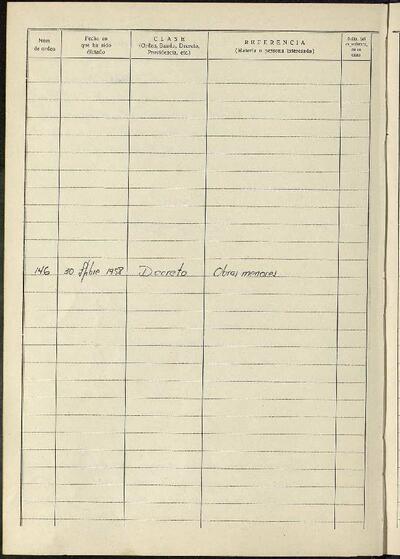 Núm. de orden
Fecha en que ha sido dictado
CLASE
(Orden, Bando, Decreto, Providencia, etc.)
REFERENCIA
(Materia o persona interesada)
146 30 1958 Decreto Obras menores